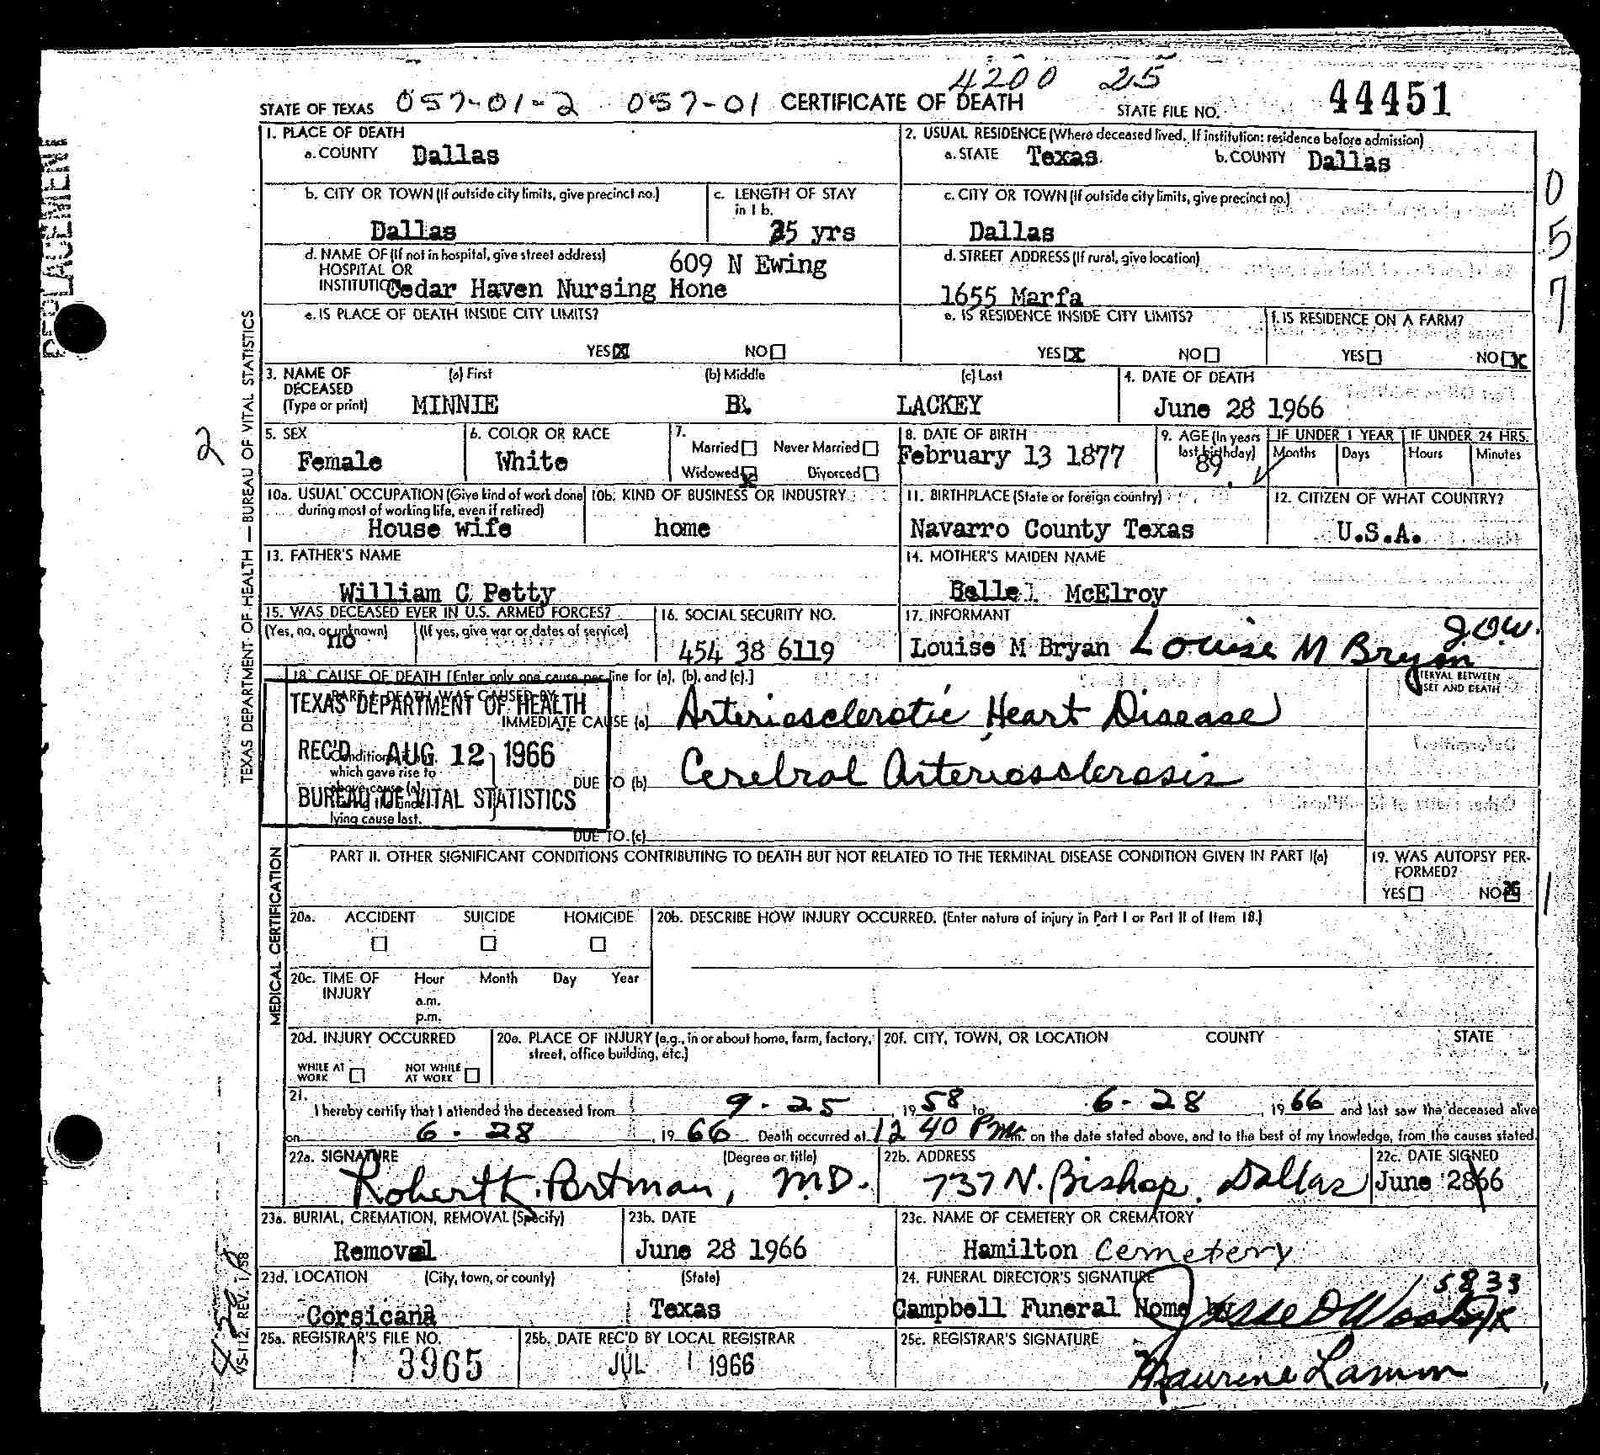 4200 25
STATE OF TEXAS 057-01-2 057-01 CERTIFICATE OF DEATH STATE FILE NO. 44451
REPLACEMENT
057
1. PLACE OF DEATH
a. COUNTY Dallas
2. USUAL RESIDENCE (Where deceased lived. If institution: residence before admission)
a. STATE Texas b. COUNTY Dallas
b. CITY OR TOWN (If outside city limits, give precinct no.)
Dallas
c. LENGTH OF STAY in 1b.
25 yrs
c. CITY OR TOWN (If outside city limits, give precinct no.)
Dallas
d. NAME OF (If not in hospital, give street address) 609 N Ewing
HOSPITAL OR
INSTITUTION Cedar Haven Nursing Hone
d. STREET ADDRESS (If rural, give location)
1655 Marfa
e. IS PLACE OF DEATH INSIDE CITY LIMITS?
YES X NO
e. IS RESIDENCE INSIDE CITY LIMITS?
YES X NO
f. IS RESIDENCE ON A FARM?
YES NO X
3. NAME OF DECEASED (Type or print)
(a) First (b) Middle (c) Last
MINNIE B. LACKEY
4. DATE OF DEATH
June 28 1966
2
5. SEX
Female
6. COLOR OR RACE
White
7.
Married Never Married
Widowed X Divorced
8. DATE OF BIRTH
February 13 1877
9. AGE (In years last birthday)
89
IF UNDER 1 YEAR
Months Days
IF UNDER 24 HRS.
Hours Minutes
10a. USUAL OCCUPATION (Give kind of work done during most of working life, even if retired)
House wife
10b. KIND OF BUSINESS OR INDUSTRY
home
11. BIRTHPLACE (State or foreign country)
Navarro County Texas
12. CITIZEN OF WHAT COUNTRY?
U.S.A.
13. FATHER'S NAME
William C Petty
14. MOTHER'S MAIDEN NAME
Belle McElroy
15. WAS DECEASED EVER IN U.S. ARMED FORCES?
(Yes, no, or unknown) (If yes, give war or dates of service)
no
16. SOCIAL SECURITY NO.
454 38 6119
17. INFORMANT
Louise M Bryan Louise M Bryan J.O.W.
18. CAUSE OF DEATH [Enter only one cause per line for (a), (b), and (c).]
PART I. DEATH WAS CAUSED BY
INTERVAL BETWEEN
ONSET AND DEATH
TEXAS DEPARTMENT OF HEALTH
REC'D AUG 12 1966
BUREAU OF VITAL STATISTICS
IMMEDIATE CAUSE (a) Arteriosclerotic Heart Disease
Conditions
which gave rise to
above cause (a)
lying cause last.
DUE TO (b) Cerebral Arteriosclerosis
DUE TO (c)
PART II. OTHER SIGNIFICANT CONDITIONS CONTRIBUTING TO DEATH BUT NOT RELATED TO THE TERMINAL DISEASE CONDITION GIVEN IN PART I(a)
19. WAS AUTOPSY PERFORMED?
YES NO X
20a. ACCIDENT SUICIDE HOMICIDE
20b. DESCRIBE HOW INJURY OCCURRED. (Enter nature of injury in Part I or Part II of Item 18.)
20c. TIME OF INJURY
Hour Month Day Year
a.m.
p.m.
20d. INJURY OCCURRED
WHILE AT WORK NOT WHILE AT WORK
20e. PLACE OF INJURY (e.g., in or about home, farm, factory, street, office building, etc.)
20f. CITY, TOWN, OR LOCATION COUNTY STATE
21.
I hereby certify that I attended the deceased from 9-25, 1958 to 6-28, 1966 and last saw the deceased alive
on 6-28, 1966 Death occurred at 12 40 Pm. on the date stated above, and to the best of my knowledge, from the causes stated.
22a. SIGNATURE (Degree or title)
Robert K. Portman, M.D.
22b. ADDRESS
737 N. Bishop, Dallas
22c. DATE SIGNED
June 2866
23a. BURIAL, CREMATION, REMOVAL (Specify)
Removal
23b. DATE
June 28 1966
23c. NAME OF CEMETERY OR CREMATORY
Hamilton Cemetery
23d. LOCATION (City, town, or county) (State)
Corsicana Texas
24. FUNERAL DIRECTOR'S SIGNATURE 5833
Campbell Funeral Home by
25a. REGISTRAR'S FILE NO.
3965
25b. DATE REC'D BY LOCAL REGISTRAR
JUL 1 1966
25c. REGISTRAR'S SIGNATURE
Maurine Lamm
TEXAS DEPARTMENT OF HEALTH — BUREAU OF VITAL STATISTICS
MEDICAL CERTIFICATION
VS-112, REV. 1/58